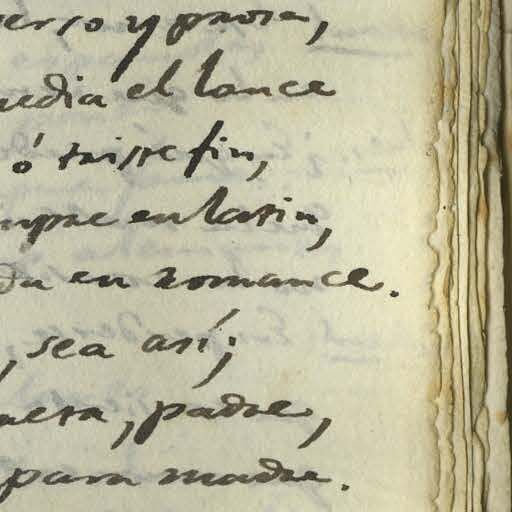 verso y prosa,
media el lance
ó triste fin,
mpre en latin,
da en romance.
, sea así;
uera, padre,
para madre.